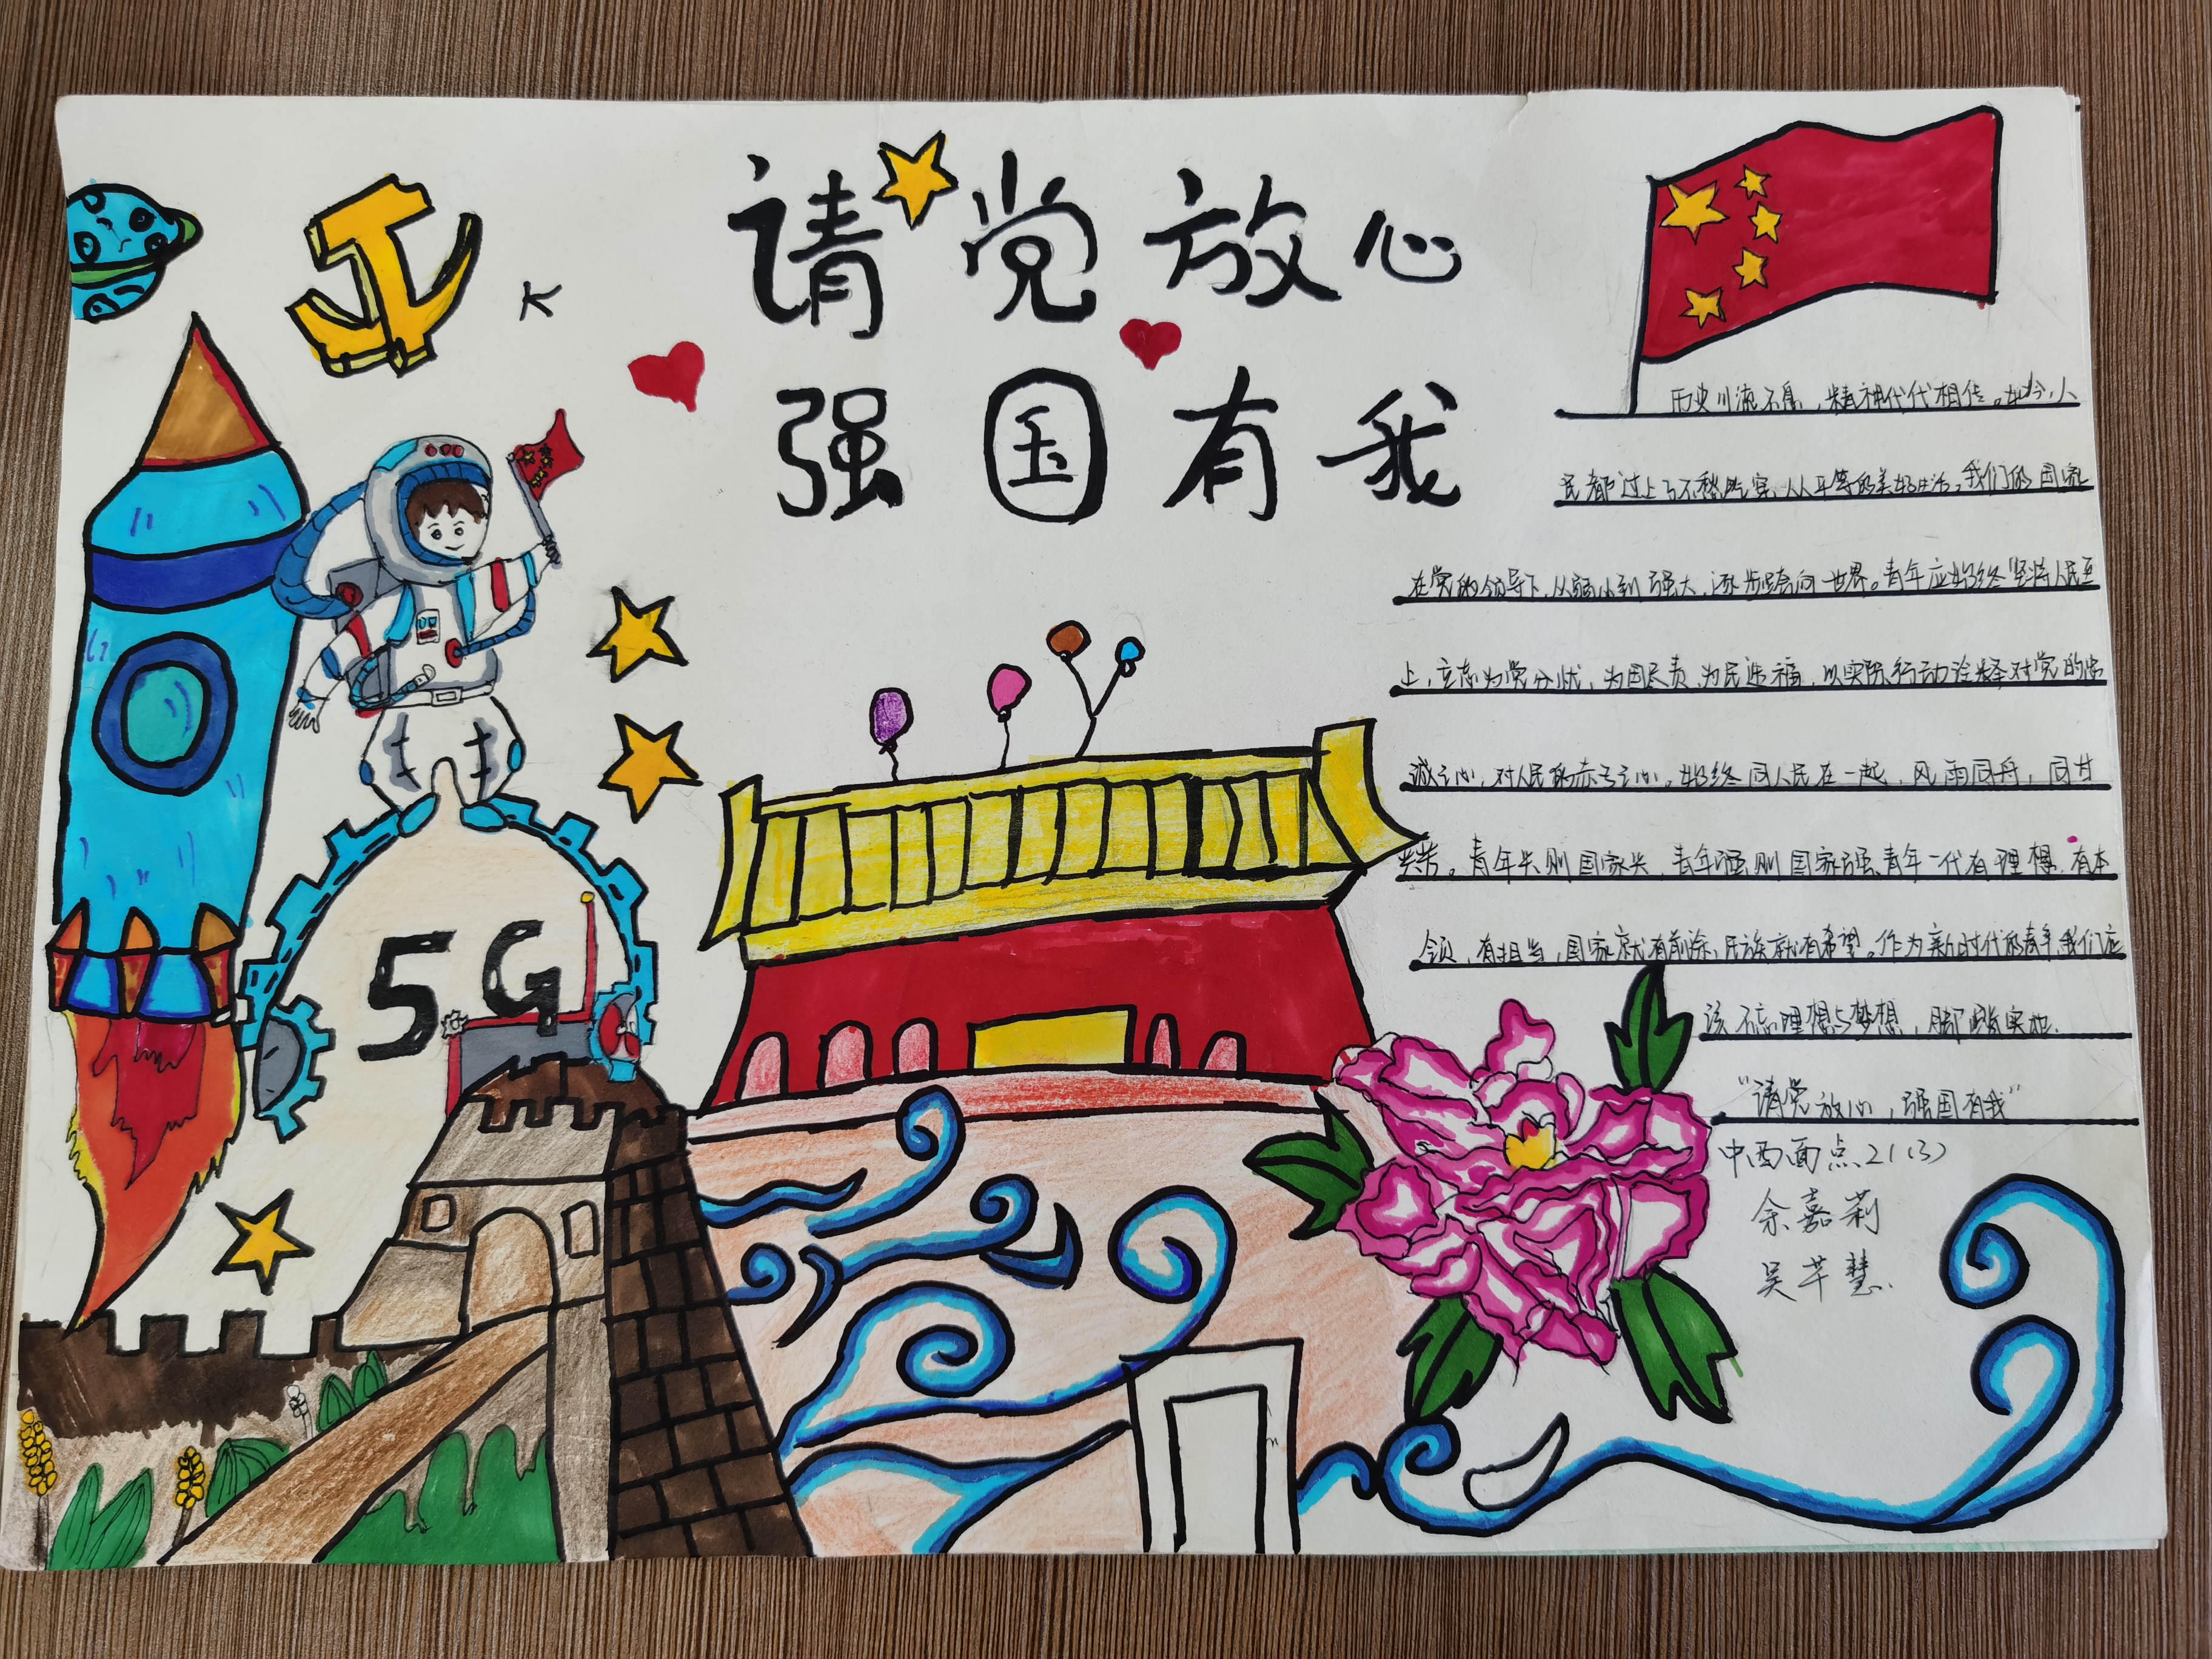 请党放心
强国有我
历史川流不息，精神代代相传。如今，人
民都过上了不愁吃穿、人人平等的美好生活。我们的国家
在党的领导下，从弱小到强大，逐步走向世界。青年应始终坚持人民至
上，立志为党分忧，为国尽责，为民造福，以实际行动诠释对党的忠
诚之心，对人民的赤子之心。始终同人民在一起，风雨同舟，同甘
共苦。青年兴则国家兴，青年强则国家强，青年一代有理想，有本
领，有担当，国家就有前途，民族就有希望。作为新时代的青年，我们应
该不忘理想与梦想，脚踏实地.
"请党放心，强国有我"
中西面点21(3)
余嘉莉
吴芊慧.
5G